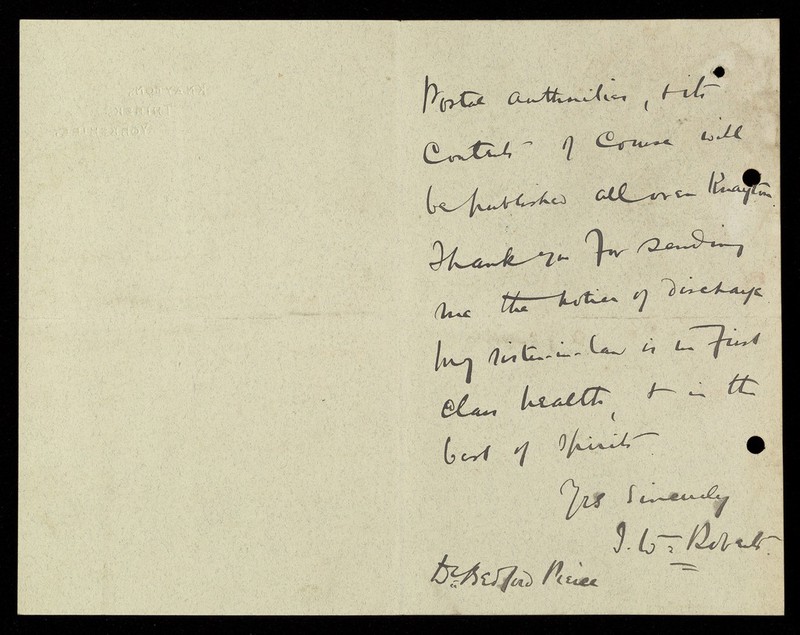 KNAYTON,
THIRSK,
YORKSHIRE.
Postal authorities, & its
Contents of course will
be published all over Knayton.
Thank you for sending
me the notice of discharge
My sister-in-law is in first
class health, & in the
best of spirits.
Yrs sincerely
J. Wm Roberts.
Dr. Bedford Pierce